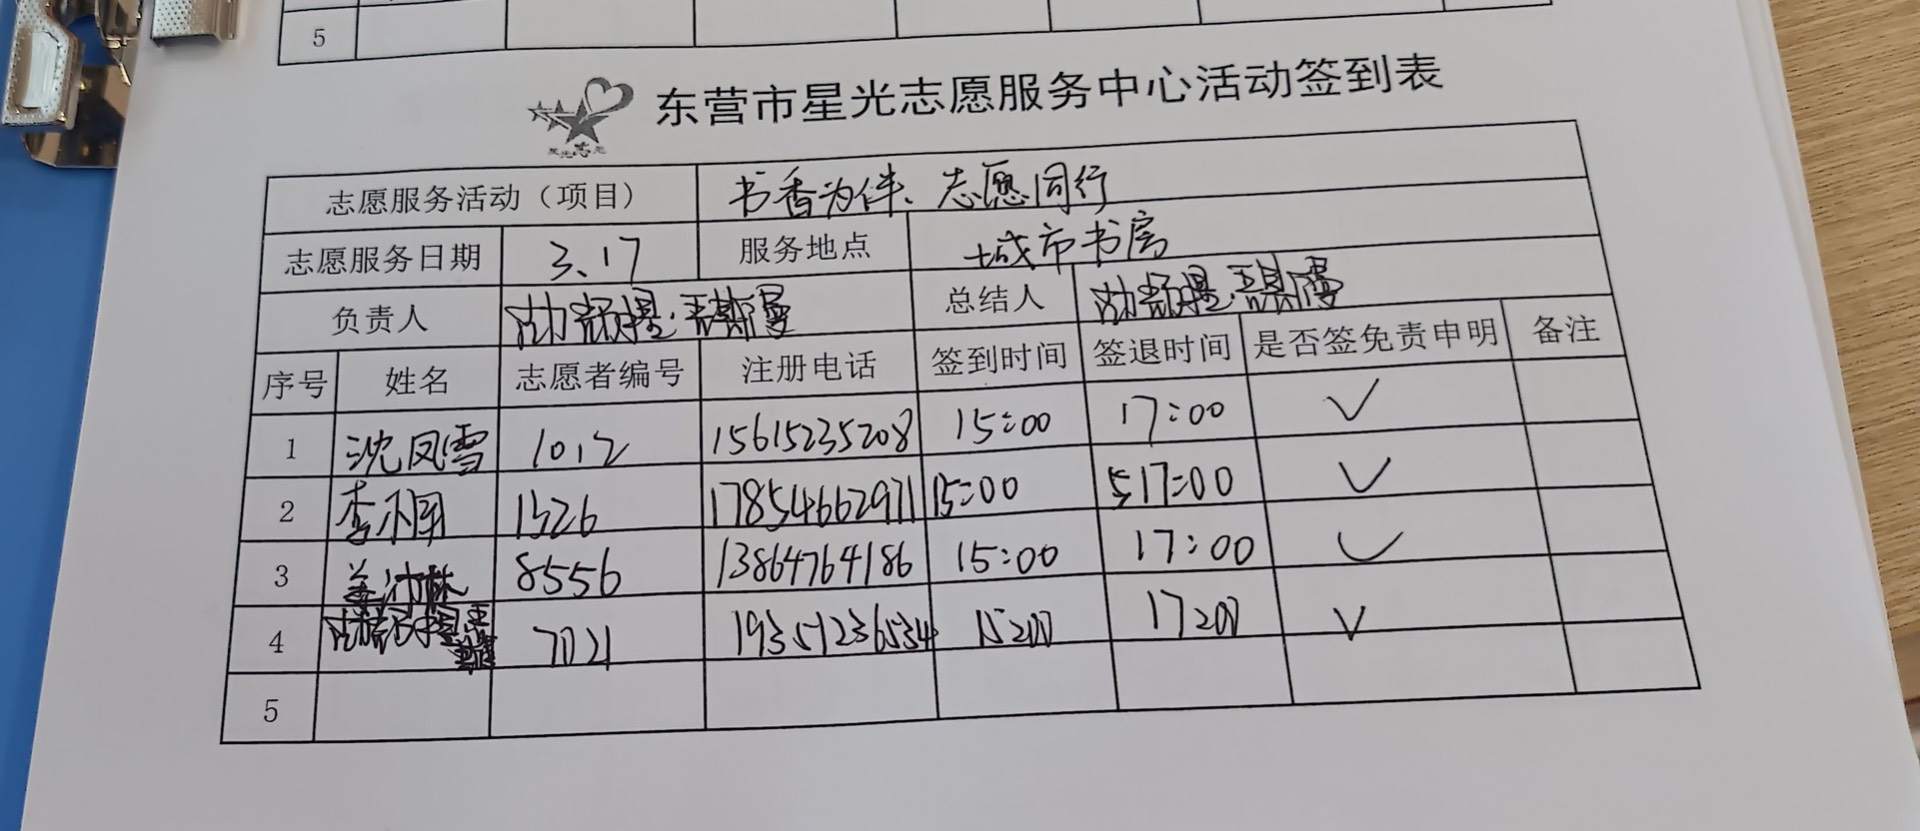 5
东营市星光志愿服务中心活动签到表
志愿服务活动（项目） 书香为伴、志愿同行
志愿服务日期 3、17 服务地点 城市书房
负责人 总结人
序号 姓名 志愿者编号 注册电话 签到时间 签退时间 是否签免责申明 备注
1 沈凤雪 1012 15615235208 15:00 17:00 ✓
2 李 1326 17854662971 15:00 17:00 ✓
3 姜 林 8556 13864764186 15:00 17:00 ✓
4 7021 19351236534 15:00 17:00 ✓
5